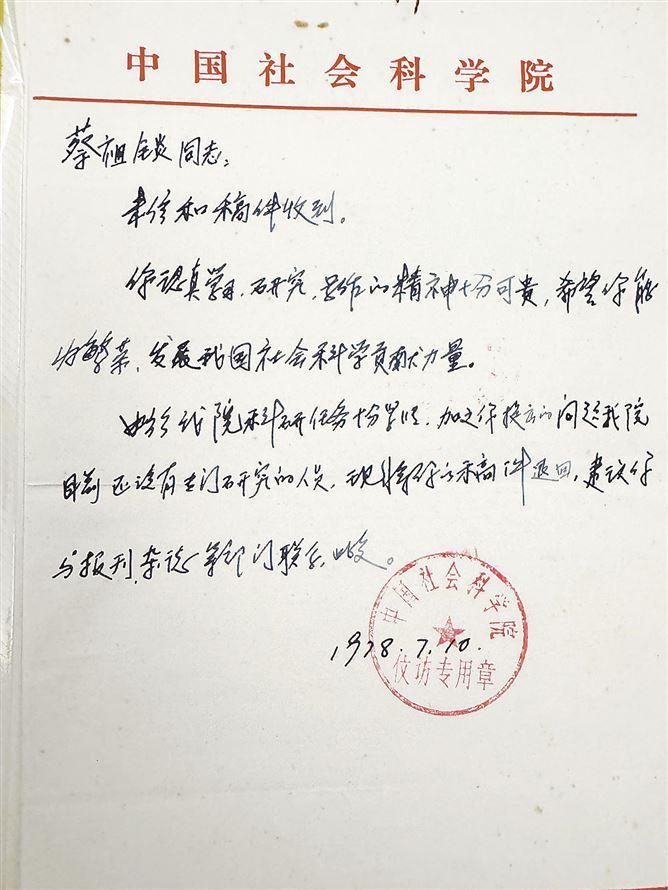 中国社会科学院
蔡祖 同志：
来信和稿件收到。
你认真学习、研究、写作的精神十分可贵，希望你能
为繁荣、发展我国社会科学贡献力量。
由于我院科研任务十分 ，加之你提出的问题我院
目前还没有专门研究的人员，现将你的稿件退回，建议你
与报刊、杂志等部门联系。此复。
中国社会科学院
1978.7.10.
信访专用章